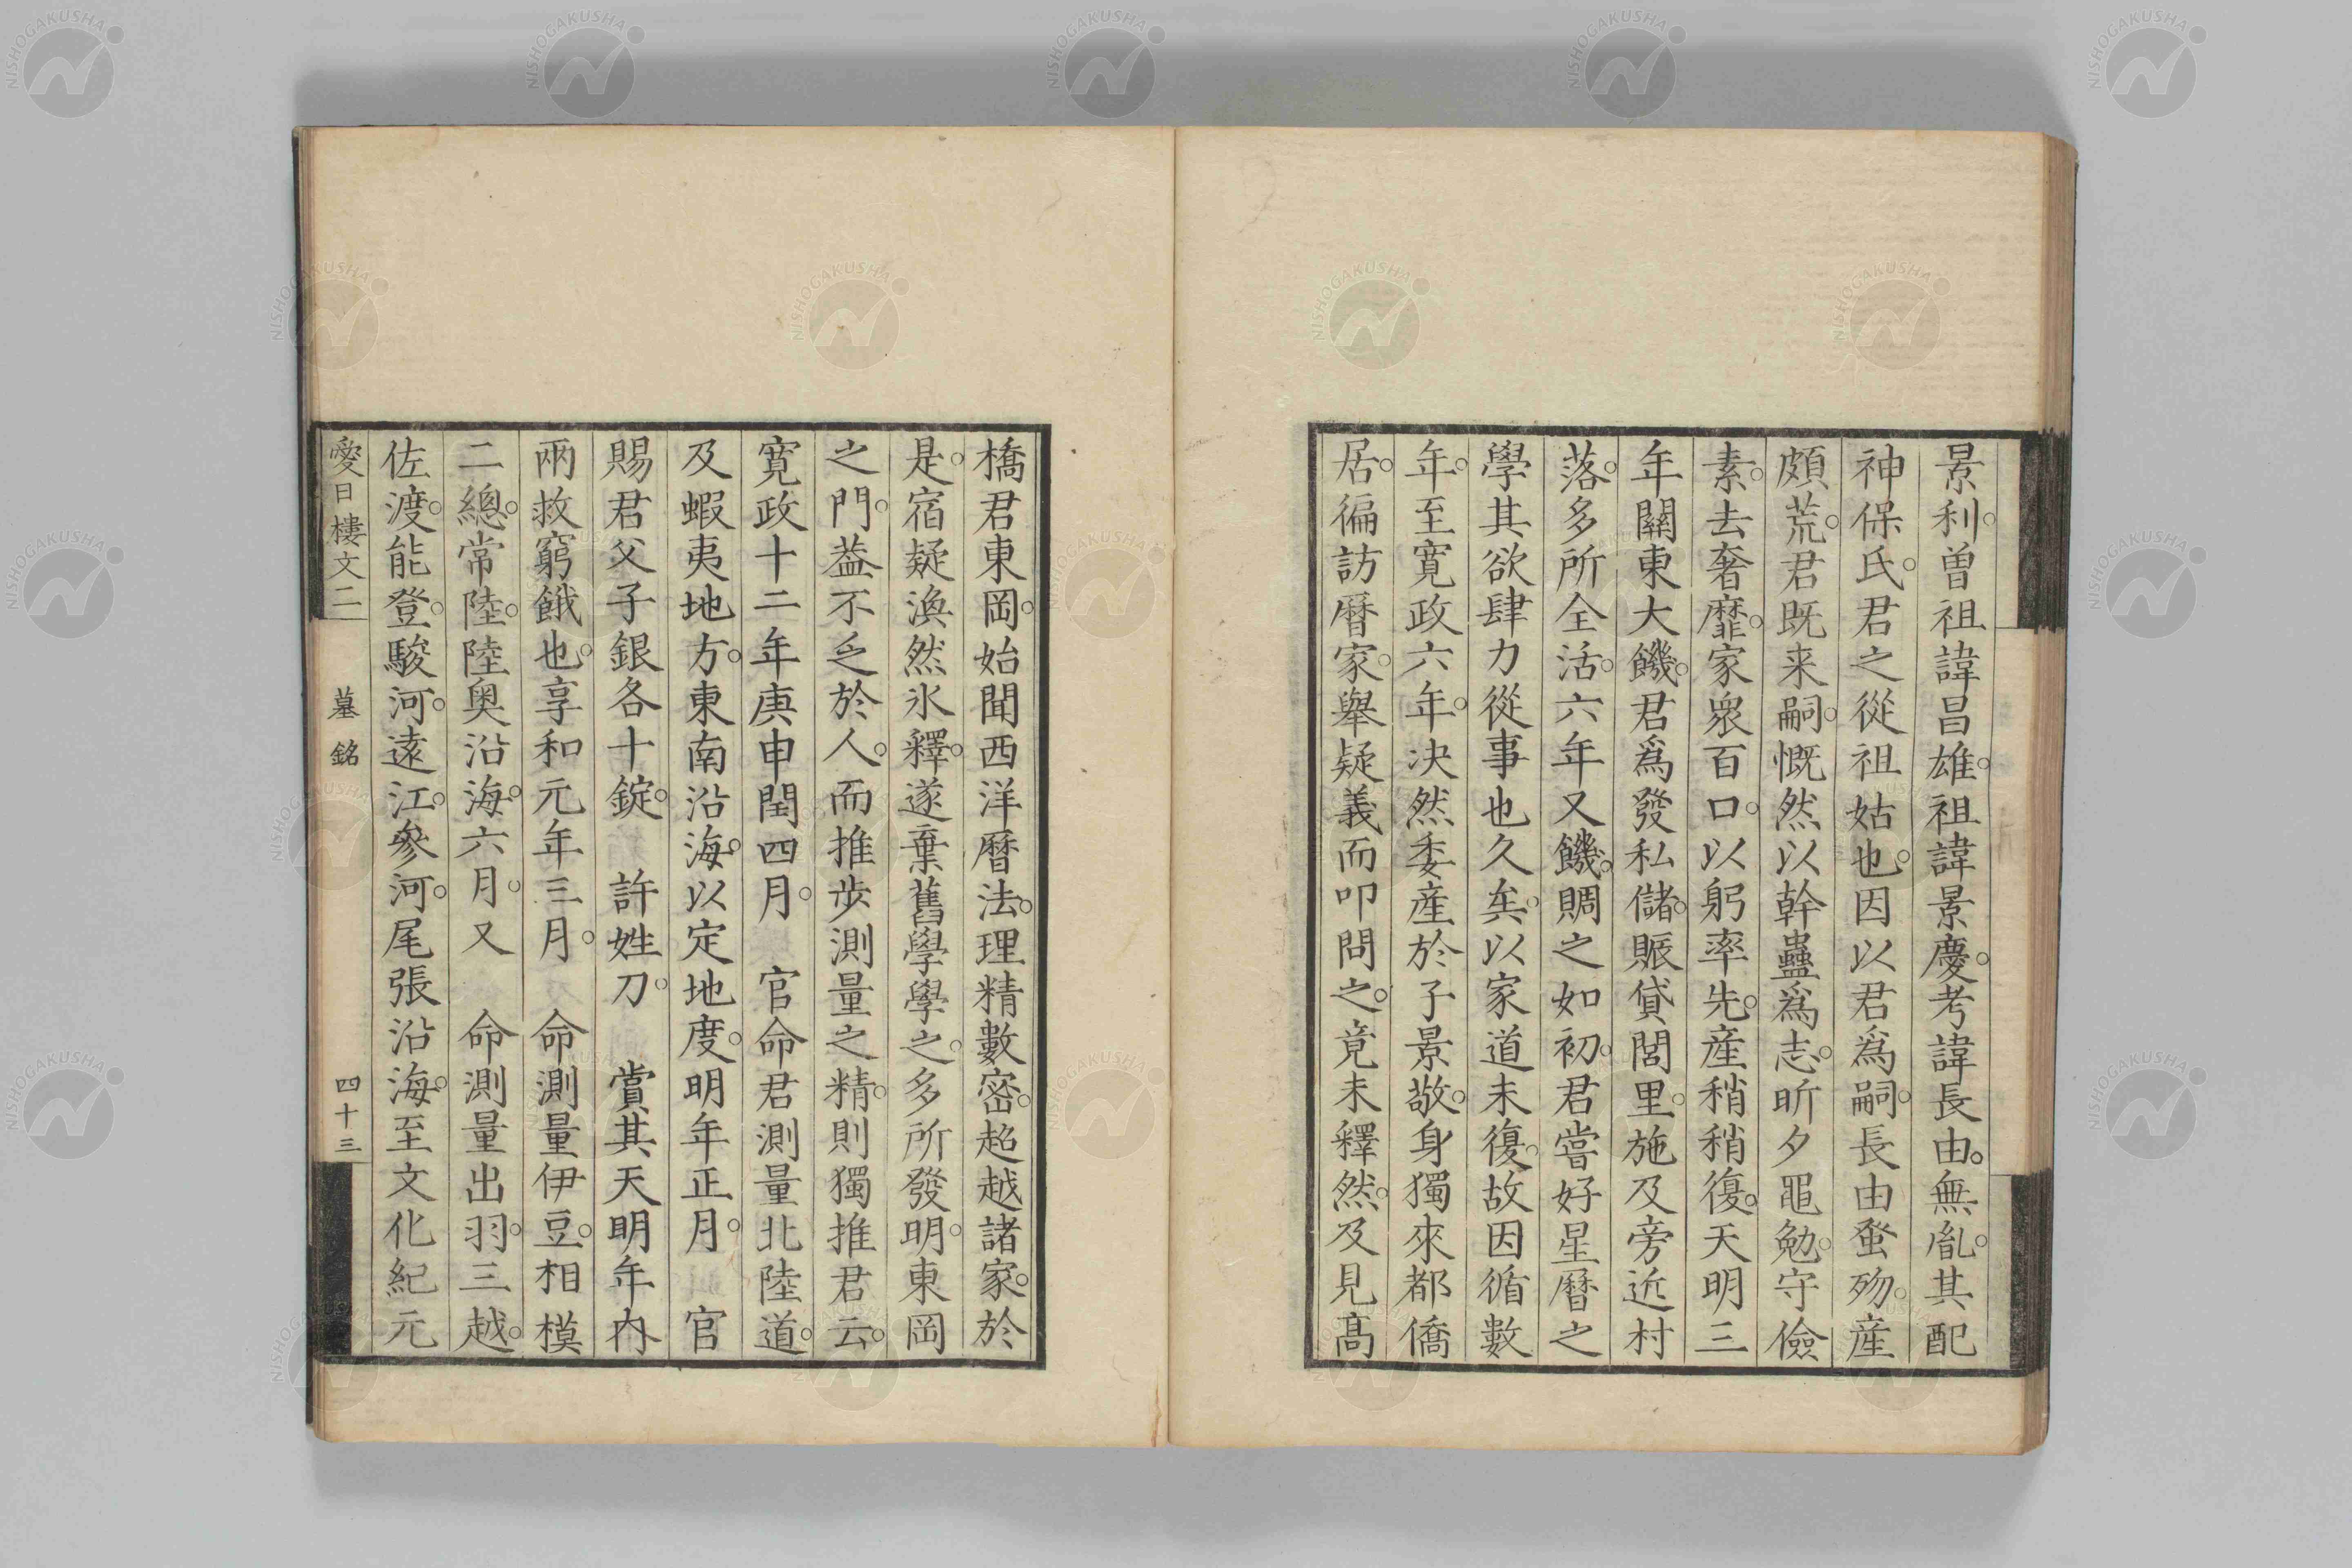 景利。曽祖諱昌雄。祖諱景慶。考諱長由。無胤。其配
神保氏。君之從祖姑也。因以君爲嗣。長由蚤歿。産
頗荒。君既来嗣。慨然以幹蠱爲志。昕夕黽勉。守儉
素。去奢靡。家衆百口。以躬率先。産稍稍復。天明三
年關東大饑。君爲發私儲。賑貸閭里。施及旁近村
落。多所全活。六年又饑。賙之如初。君嘗好星曆之
學其欲肆力從事也久矣。以家道未復。故因循數
年。至寛政六年。决然委産於子景敬。身獨來都僑
居。徧訪曆家。舉疑義而叩問之。竟未釋然。及見髙
橋君東岡。始聞西洋曆法。理精數密。超越諸家。於
是。宿疑渙然氷釋。遂棄舊學學之。多所發明。東岡
之門。葢不乏於人。而推歩測量之精。則獨推君云。
寛政十二年庚申閏四月。　官命君測量北陸道。
及蝦夷地方。東南沿海。以定地度。明年正月。　官
賜君父子銀各十錠。　許姓刀。　賞其天明年内
兩救窮餓也。享和元年三月。　命測量伊豆。相模
二總。常陸。陸奥沿海。六月。又　命測量出羽。三越。
佐渡。能登。駿河。遠江。參河。尾張沿海。至文化紀元
愛日樓文二　墓銘　四十三
NISHOGAKUSHA